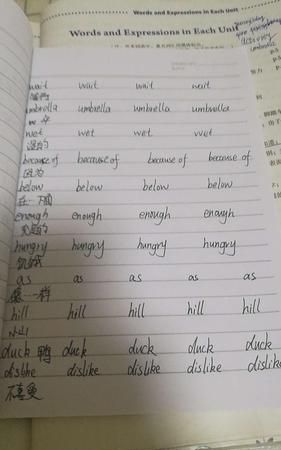 Words and Expressions in Each Unit
Words and Expressions in Each Unit
wait wait wait wait
umbrella umbrella umbrella umbrella
wet wet wet wet
湿的
because of because of because of because of
因为
below below below below
在…下面
enough enough enough enough
hungry hungry hungry hungry
饥饿
as as as as as
像…一样
hill hill hill hill hill
小山
duck 鸭 duck duck duck duck
dislike dislike dislike dislike dislike
不喜爱